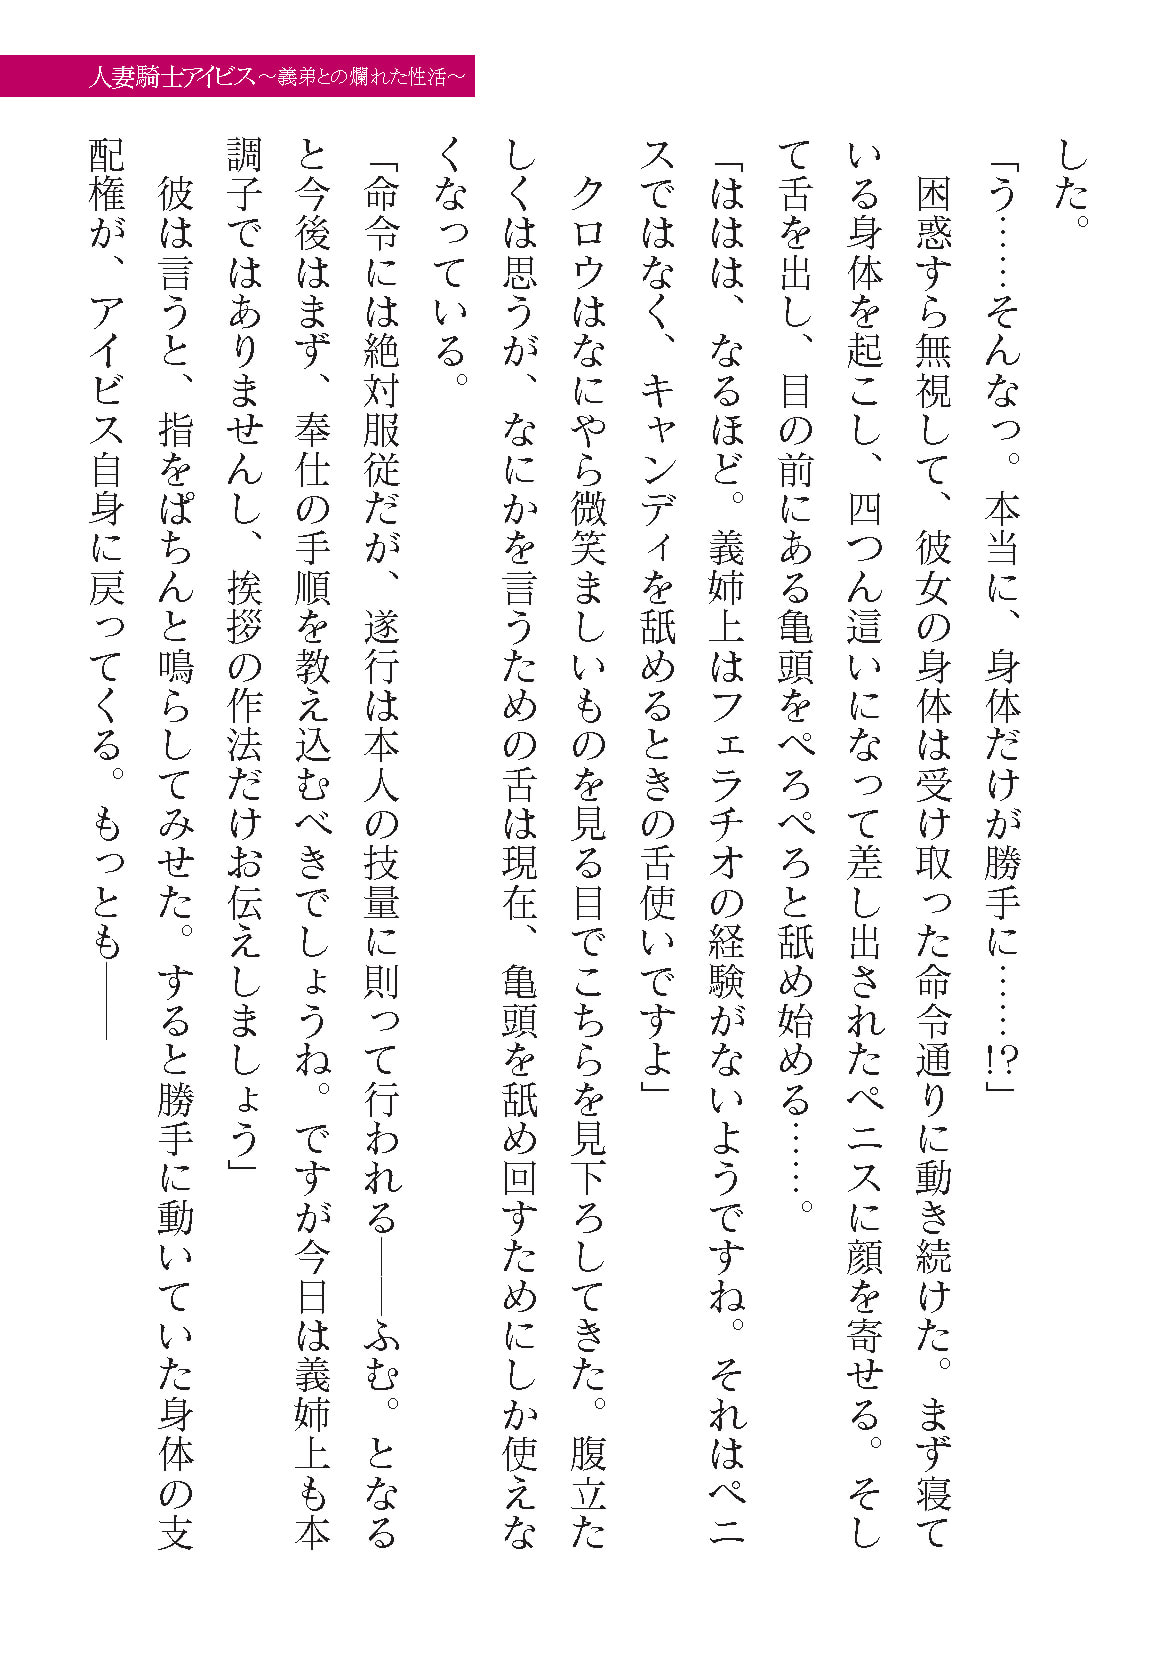 人妻騎士アイビス～義弟との爛れた性活～
した。
「う……そんなっ。本当に、身体だけが勝手に……!?」
　困惑すら無視して、彼女の身体は受け取った命令通りに動き続けた。まず寝て
いる身体を起こし、四つん這いになって差し出されたペニスに顔を寄せる。そし
て舌を出し、目の前にある亀頭をぺろぺろと舐め始める……。
「ははは、なるほど。義姉上はフェラチオの経験がないようですね。それはペニ
スではなく、キャンディを舐めるときの舌使いですよ」
　クロウはなにやら微笑ましいものを見る目でこちらを見下ろしてきた。腹立た
しくは思うが、なにかを言うための舌は現在、亀頭を舐め回すためにしか使えな
くなっている。
「命令には絶対服従だが、遂行は本人の技量に則って行われる――ふむ。となる
と今後はまず、奉仕の手順を教え込むべきでしょうね。ですが今日は義姉上も本
調子ではありませんし、挨拶の作法だけお伝えしましょう」
　彼は言うと、指をぱちんと鳴らしてみせた。すると勝手に動いていた身体の支
配権が、アイビス自身に戻ってくる。もっとも――